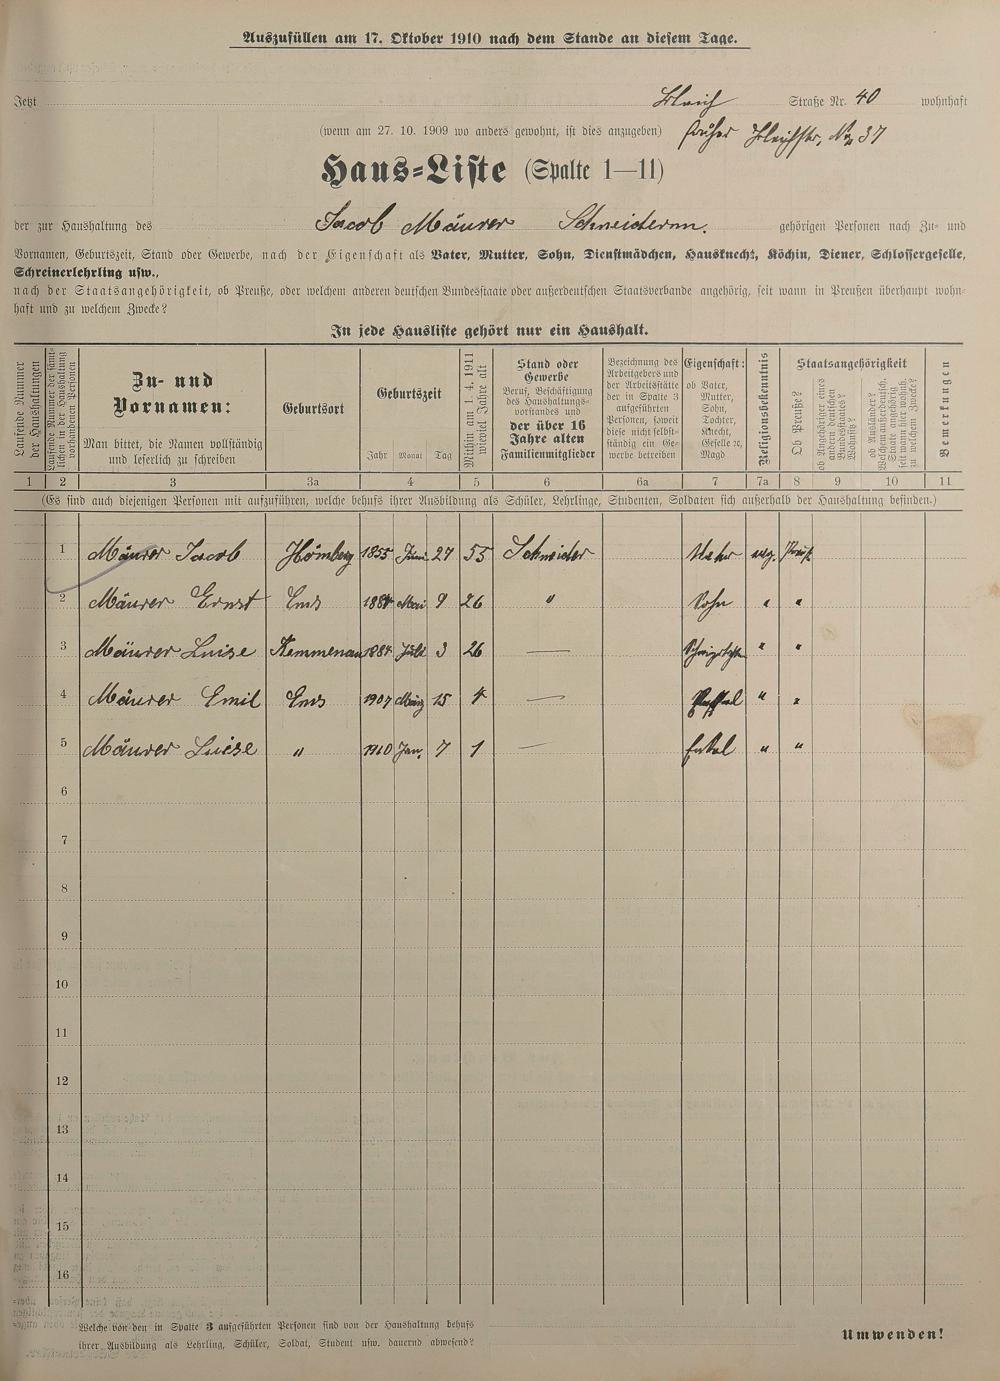 Auszufüllen am 17. Oktober 1910 nach dem Stande an diesem Tage.
Jetzt Bleich Straße Nr. 40 wohnhaft
(wenn am 27. 10. 1909 wo anders gewohnt, ist dies anzugeben) früher Bleichstr. No 37
Haus-Liste (Spalte 1—11)
der zur Haushaltung des Jacob Mäurer Schneiderm. gehörigen Personen nach Zu- und
Vornamen, Geburtszeit, Stand oder Gewerbe, nach der Eigenschaft als Vater, Mutter, Sohn, Dienstmädchen, Hausknecht, Köchin, Diener, Schlossergeselle,
Schreinerlehrling usw.,
nach der Staatsangehörigkeit, ob Preuße, oder welchem anderen deutschen Bundesstaate oder außerdeutschen Staatsverbande angehörig, seit wann in Preußen überhaupt wohn-
haft und zu welchem Zwecke?
In jede Hausliste gehört nur ein Haushalt.
Laufende Nummer
der Haushaltungen
Laufende Nummer der sämt-
lichen in der Haushaltung
vorhandenen Personen
Zu- und
Vornamen:
Man bittet, die Namen vollständig
und leserlich zu schreiben
Geburtsort
Geburtszeit
Jahr Monat Tag
Mithin am 1. 4. 1911
wieviel Jahre alt
Stand oder
Gewerbe
Beruf, Beschäftigung
des Haushaltungs-
vorstandes und
der über 16
Jahre alten
Familienmitglieder
Bezeichnung des
Arbeitgebers und
der Arbeitsstätte
der in Spalte 3
aufgeführten
Personen, soweit
diese nicht selbst-
ständig ein Ge-
werbe betreiben
Eigenschaft:
ob Vater,
Mutter,
Sohn,
Tochter,
Knecht,
Geselle ꝛc.
Magd
Religionsbekenntnis
Staatsangehörigkeit
Ob Preuße?
ob Angehöriger eines
andern deutschen
Bundesstaates?
Welches?
ob Ausländer?
Welchem außerdeutsch.
Staate angehörig
seit wann hier wohnh.
zu welchem Zwecke?
Bemerkungen
1 2 3 3a 4 5 6 6a 7 7a 8 9 10 11
(Es sind auch diejenigen Personen mit aufzuführen, welche behufs ihrer Ausbildung als Schüler, Lehrlinge, Studenten, Soldaten sich außerhalb der Haushaltung befinden.)
1 Mäurer Jacob Hömberg 1855 Juni 27 55 Schneider Vater evg. Preuß
2 Mäurer Ernst Ems 1884 Mai 9 26 " Sohn " "
3 Mäurer Luise Kemmenau 1884 Juli 3 26 — " "
4 Mäurer Emil Ems 1907 März 15 4 — " "
5 Mäurer Luise " 1910 Jan. 7 1 — Enkel " "
6
7
8
9
10
11
12
13
14
15
16
Welche von den in Spalte 3 aufgeführten Personen sind von der Haushaltung behufs
ihrer Ausbildung als Lehrling, Schüler, Soldat, Student usw. dauernd abwesend?
Umwenden!